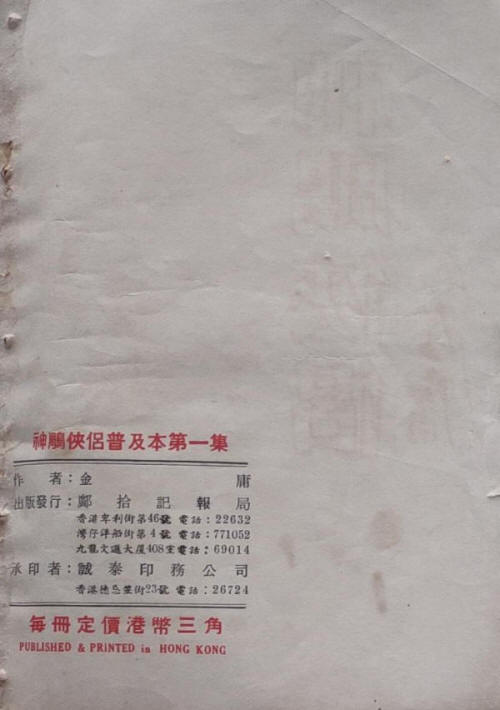 神鵰俠侶普及本第一集
作者：金庸
出版發行：鄺拾記報局
香港卑利街第46號 電話：22632
灣仔洋船街第4號 電話：771052
九龍文遜大厦408室電話：69014
承印者：誠泰印務公司
香港德忌笠街23號 電話：26724
每冊定價港幣三角
PUBLISHED & PRINTED in HONG KONG